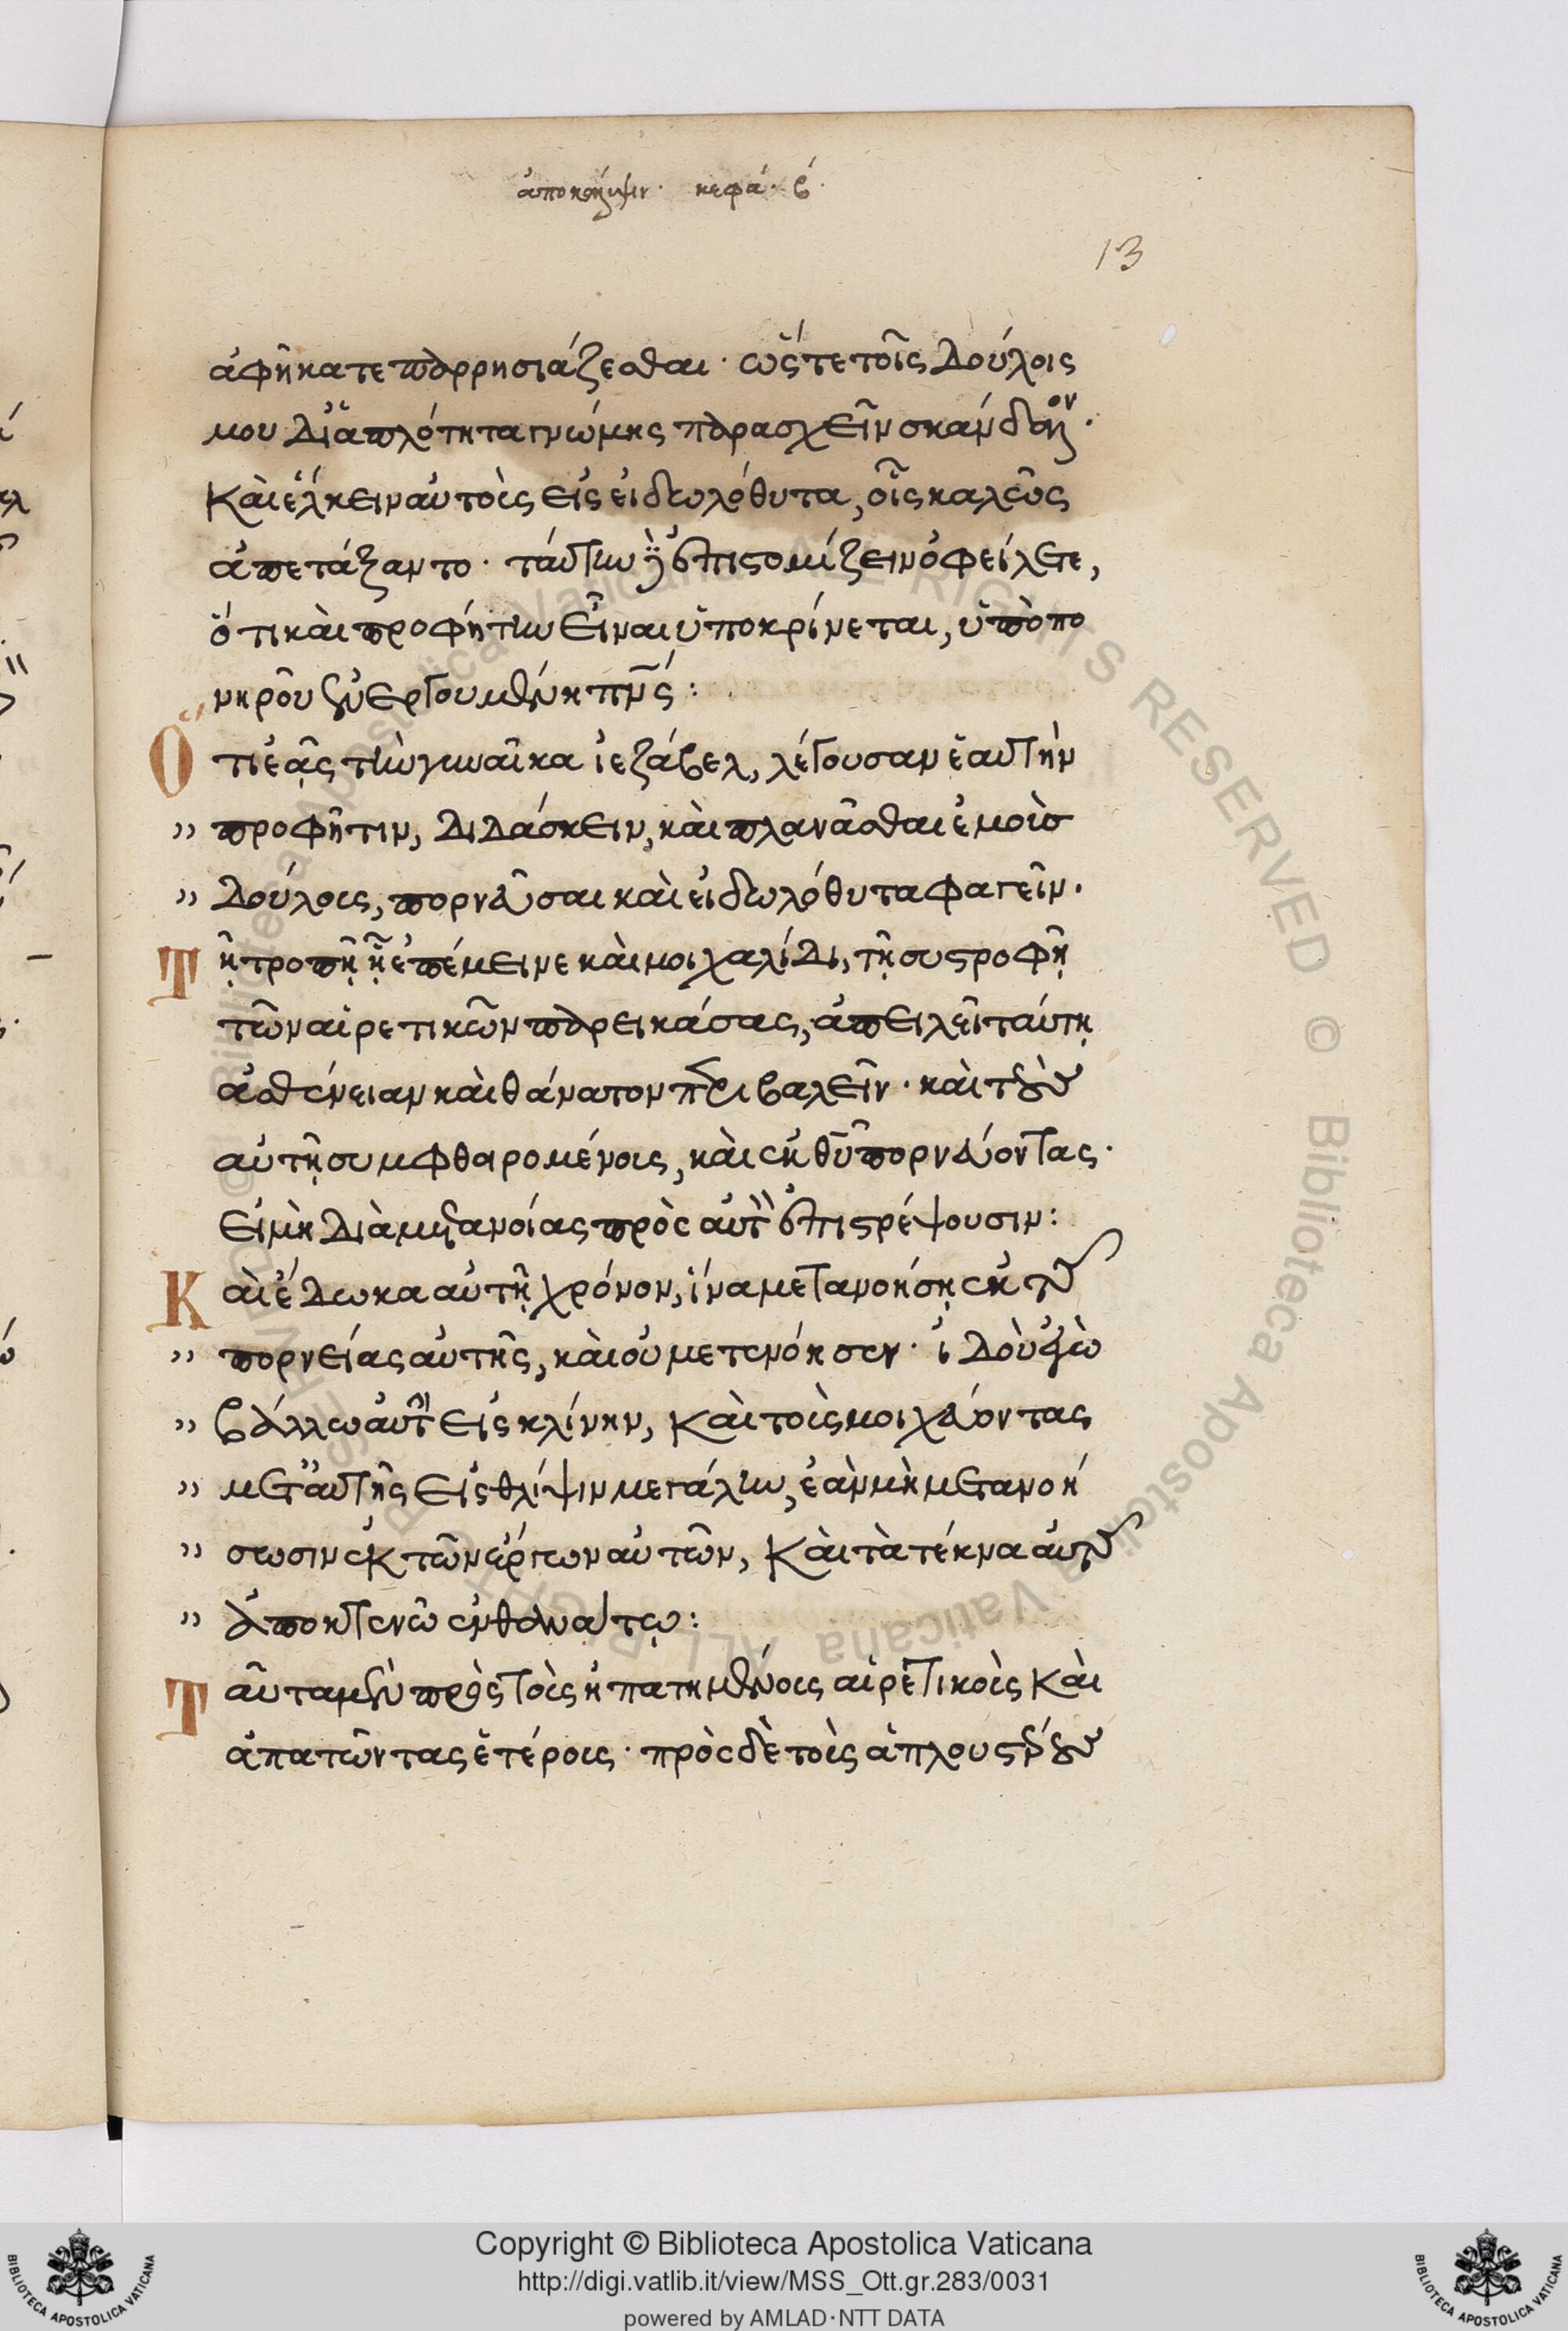 ἀποκάλυψιν · κεφά · β ·
13
ἀφήκατε παρρησιάζεσθαι · ὥστε τοῖς δούλοις
μου δι' ἁπλότητα γνώμης παρασχεῖν σκάνδαλον ·
καὶ ἕλκειν αὐτοὺς εἰς εἰδωλόθυτα, οἷς καλῶς
ἀπετάξαντο · ταύτην ἐπιστομίζειν ὀφείλετε,
ὅτι καὶ προφῆτιν εἶναι ὑποκρίνεται, ὑπὸ πο
νηροῦ ἐνεργουμένη πνς :
Ὅτι ἐᾷς τὴν γυναῖκα ἰεζάβελ, λέγουσαν ἑαυτὴν
" προφῆτιν, διδάσκειν, καὶ πλανᾶσθαι ἐμοὺς
" δούλους, πορνεῦσαι καὶ εἰδωλόθυτα φαγεῖν.
Τῇ τροπῇ ᾗ ἐπέμεινε καὶ μοιχαλίδι, τῇ συστροφῇ
τῶν αἱρετικῶν παρεικάσας, ἀπειλεῖ ταύτῃ
ἀσθένειαν καὶ θάνατον περιβαλεῖν · καὶ τοὺς
αὐτῇ συμφθαρομένους, καὶ ἐκ θῦ πορνεύοντας ·
εἰ μὴ διὰ μετανοίας πρὸς αὐτὸν ἐπιστρέψουσιν :
Καὶ ἔδωκα αὐτῇ χρόνον, ἵνα μετανοήσῃ ἐκ τῆς
" πορνείας αὐτῆς, καὶ οὐ μετενόησεν · ἰδοὺ ἐγὼ
" βάλλω αὐτὴν εἰς κλίνην, καὶ τοὺς μοιχεύοντας
" μετ' αὐτῆς εἰς θλίψιν μεγάλην, ἐὰν μὴ μετανοή
" σωσιν ἐκ τῶν ἔργων αὐτῶν, καὶ τὰ τέκνα αὐτῆς
" ἀποκτενῶ ἐν θανάτῳ :
Ταῦτα μὲν πρὸς τοὺς ἠπατημένους αἱρετικοὺς καὶ
ἀπατῶντας ἑτέρους · πρὸς δὲ τοὺς ἁπλουστέρους
Copyright © Biblioteca Apostolica Vaticana
http://digi.vatlib.it/view/MSS_Ott.gr.283/0031
powered by AMLAD·NTT DATA